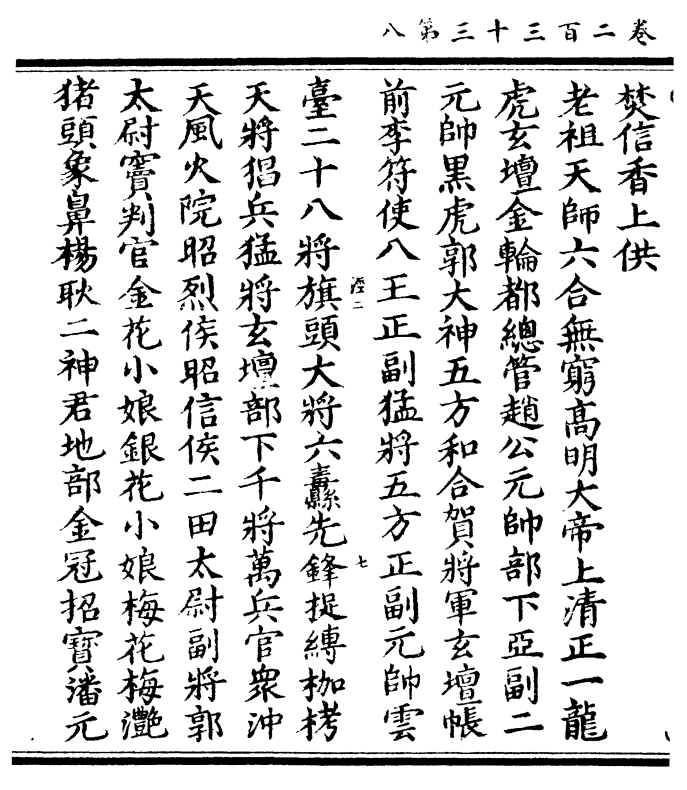 卷二百三十三第八
焚信香上供
老祖天師六合無窮高明大帝上清正一龍
虎玄壇金輪都總管趙公元帥部下亞副二
元帥黒虎郭大神五方和合賀將軍玄壇帳
前李符使八王正副猛將五方正副元帥雲
臺二十八將旗頭大將六纛先鋒捉縛枷栲
天將猖兵猛將玄壇部下千將萬兵官衆沖
天風火院昭烈侯昭信侯二田太尉副將郭
太尉竇判官金花小娘銀花小娘梅花梅灔
猪頭象鼻楊耿二神君地部金冠招寳潘元
七